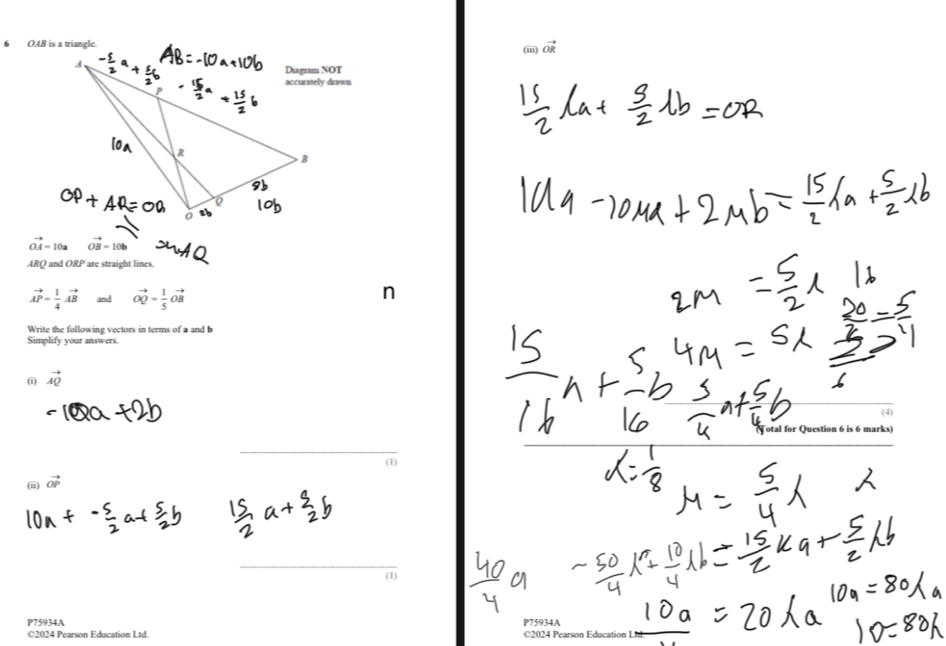 6 OAB is a triangle.
AB = -10a+10b
-5/2 a + 5/2 b
-15/2 a + 15/2 b
Diagram NOT
accurately drawn
A
P
10a
R
B
8b
10b
Q
O
2b
OP + AR = OR
OA = 10a OB = 10b
ARQ and ORP are straight lines.
AP = 1/4 AB and OQ = 1/5 OB
n
Write the following vectors in terms of a and b
Simplify your answers.
(i) AQ
-10a + 2b
(1)
(ii) OP
10a + -5/2 a + 5/2 b 15/2 a + 5/2 b
(1)
P75934A
©2024 Pearson Education Ltd.
(iii) OR
15/2 λa + 5/2 λb = OR
10a - 10μa + 2μb = 15/2 λa + 5/2 λb
2μ = 5/2 λ
4μ = 5λ
15/16 a + 5/16 b
(4)
(Total for Question 6 is 6 marks)
λ = 1/8
μ = 5/4 λ
-50/4 λa + 10/4 λb = 15/2 λa + 5/2 λb
40/4 a
10a = 20λa
10a = 80λa
10 = 80λ
P75934A
©2024 Pearson Education Ltd.